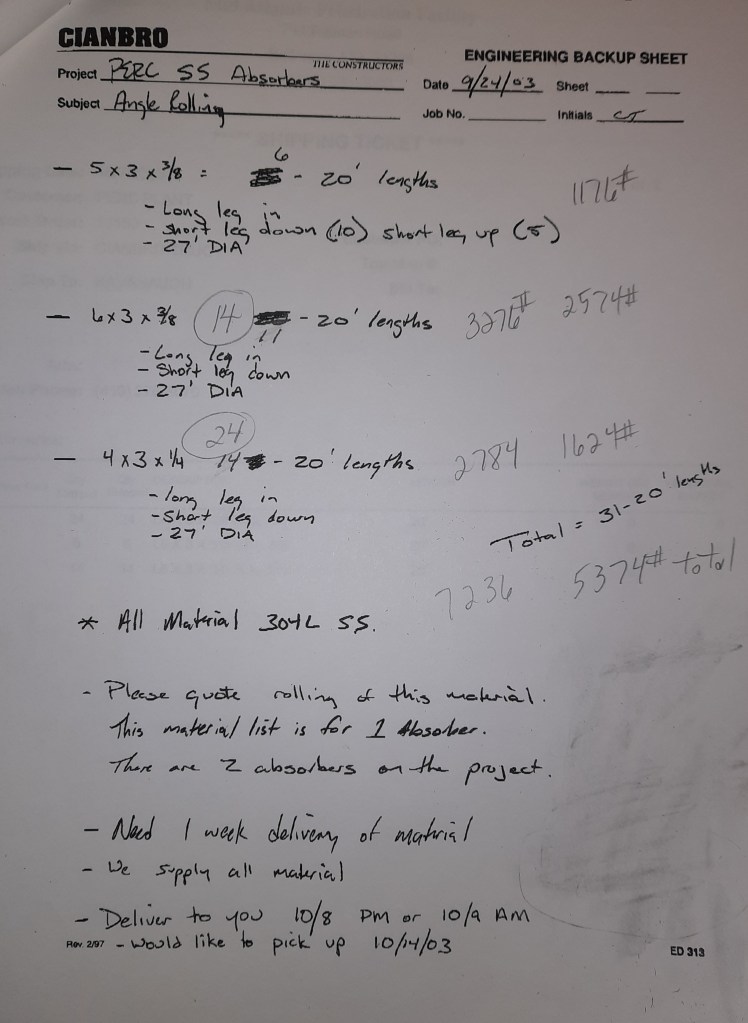 CIANBRO
THE CONSTRUCTORS
ENGINEERING BACKUP SHEET
Project PERC SS Absorbers
Date 9/24/03 Sheet
Subject Angle Rolling
Job No. Initials CT
- 5 x 3 x 3/8 = 6 - 20' lengths 1176#
- Long leg in
- short leg down (10) short leg up (5)
- 27' DIA
- 6x3 x 3/8 14 11 - 20' lengths 3276# 2574#
- Long leg in
- Short leg down
- 27' DIA
- 4 x 3 x 1/4 24 14 - 20' lengths 2784 1624#
- long leg in
- Short leg down
- 27' DIA
Total = 31-20' lengths
7236 5374# total
* All Material 304L SS.
- Please quote rolling of this material.
This material list is for 1 Absorber.
There are 2 absorbers on the project.
- Need 1 week delivery of material
- We supply all material
- Deliver to you 10/8 PM or 10/9 AM
Rev. 2/97 - would like to pick up 10/14/03
ED 313